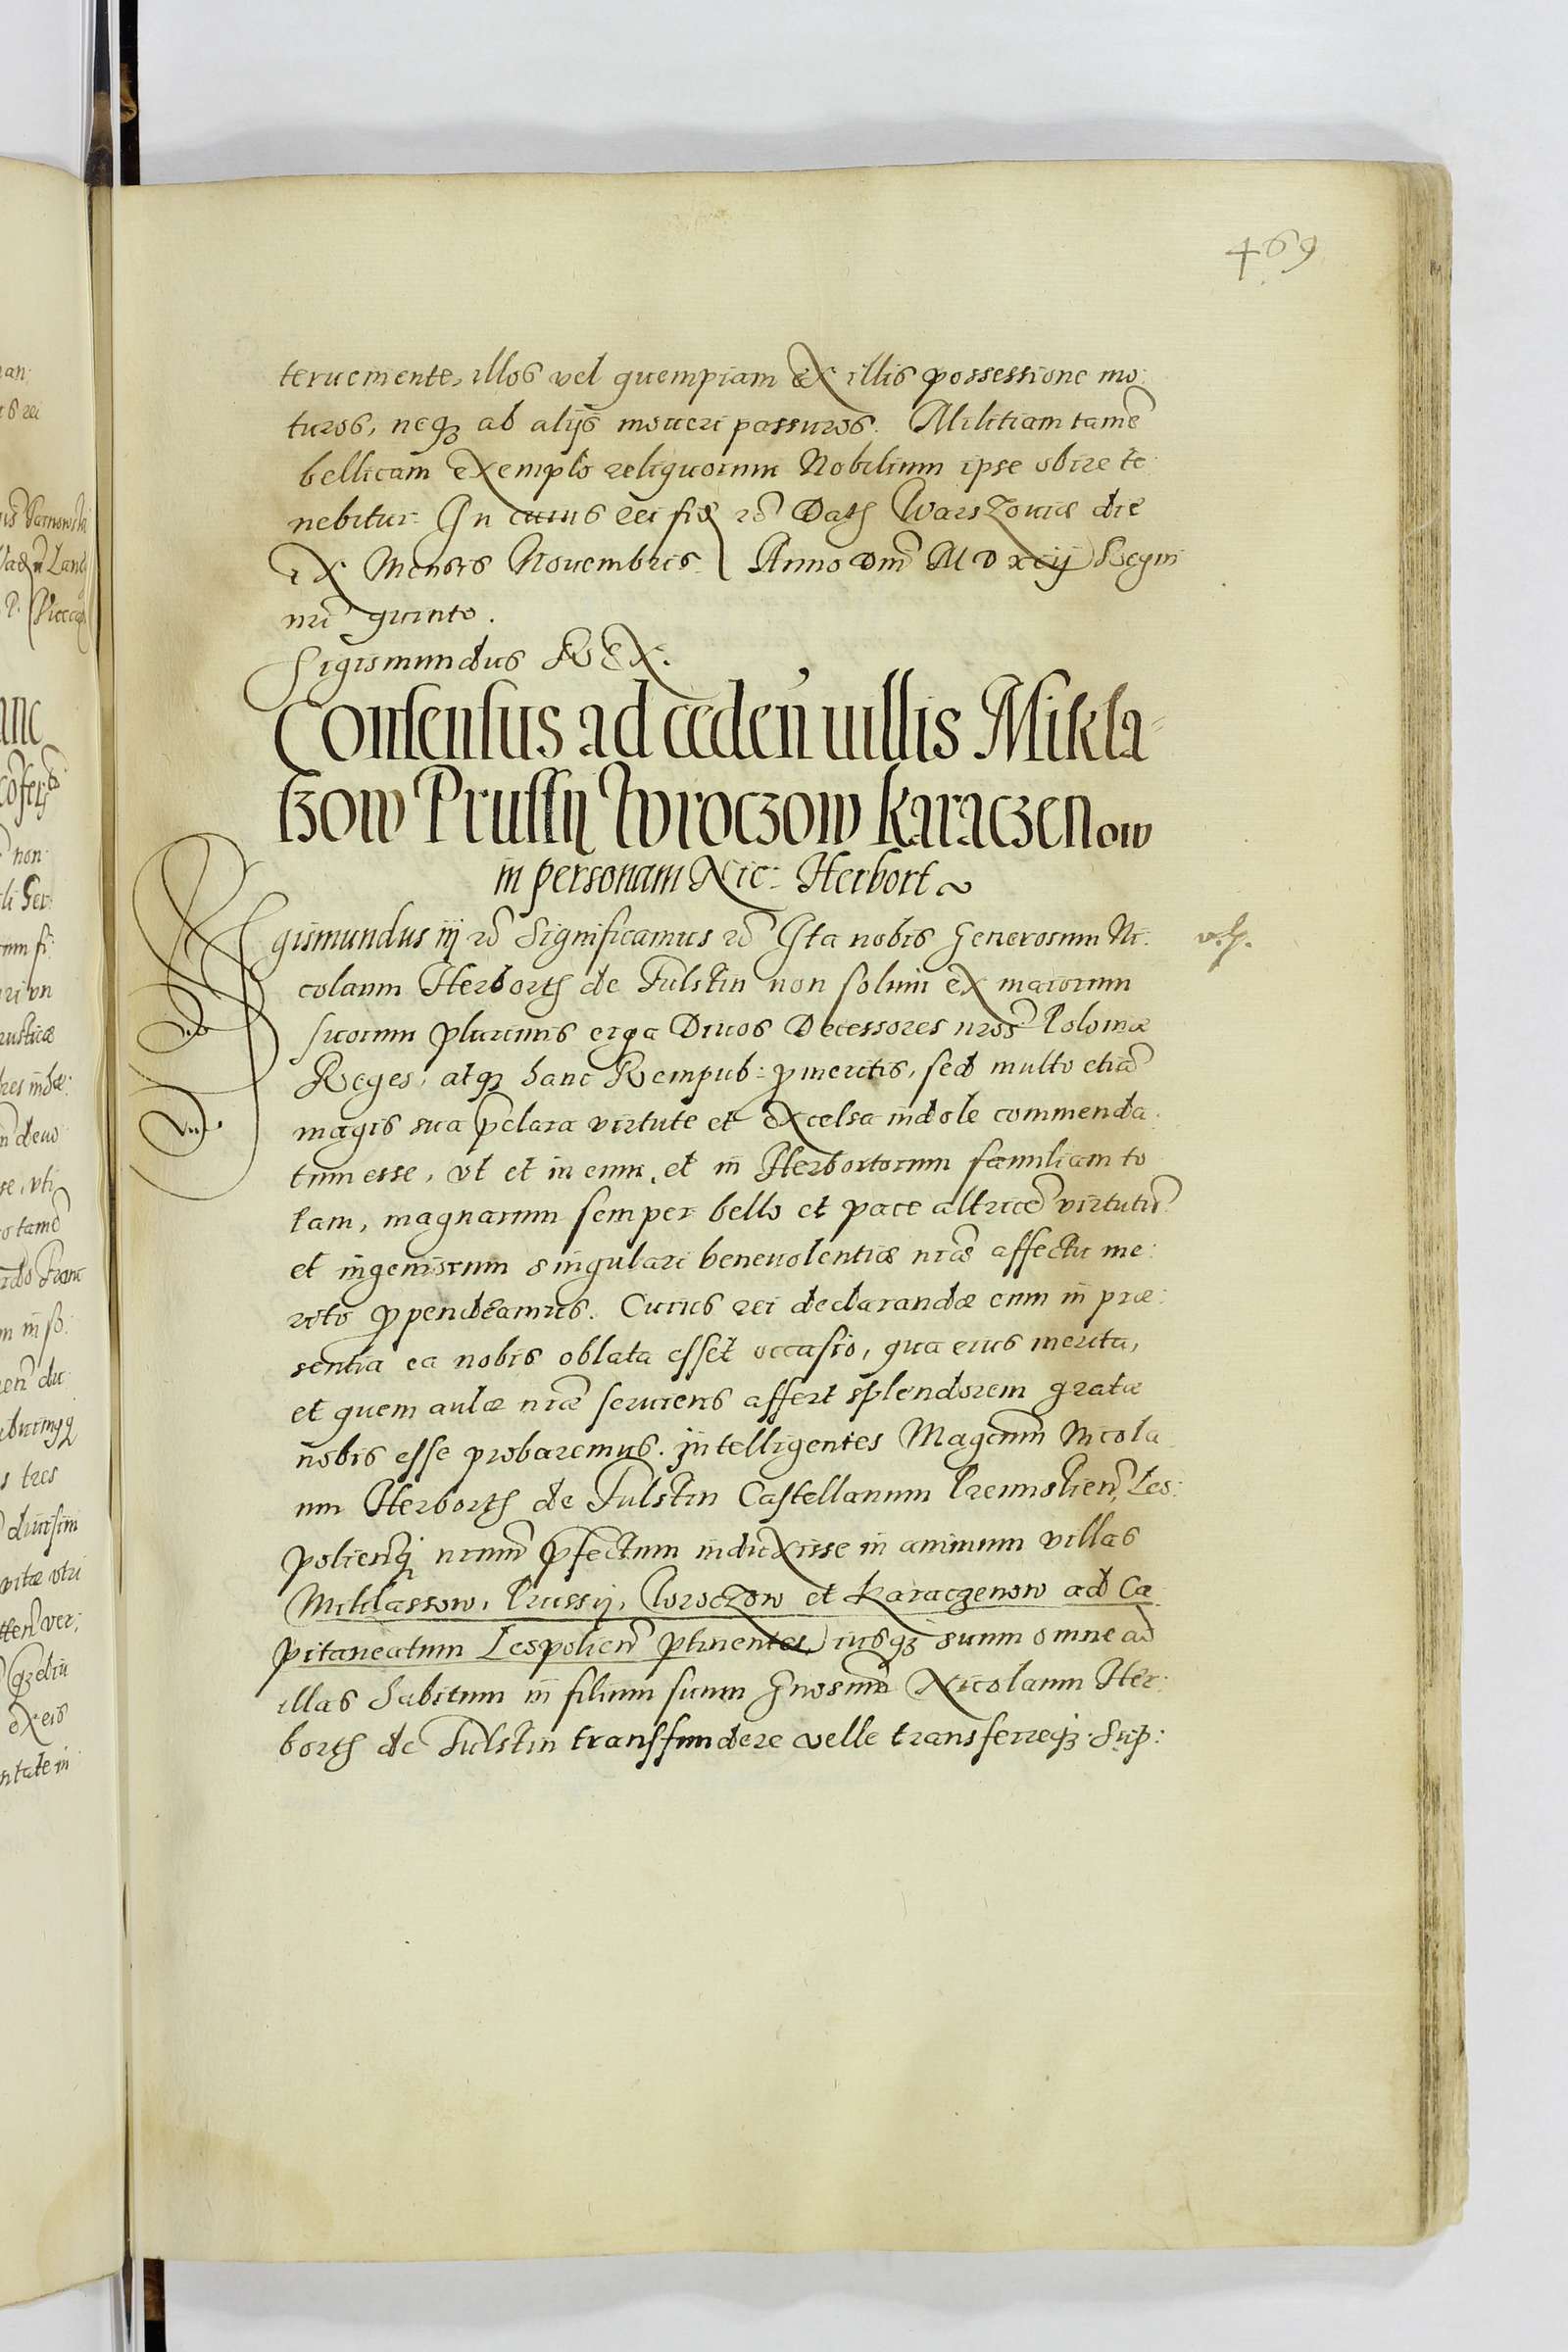 469
teruemente, illos vel quempiam ex illis possessione mo:
turos, neqꝫ ab alijs moueri passuros. Militiam tamẽ
bellicam exemplo reliquorum Nobilium ipse obire te:
nebitur. In cuius rei fid Datꝭ Warszouiæ die
IX Mensis Nouembris Anno Dnĩ MDxcij Regni
nrĩ quinto.
Sigismundus REX.
Consensus ad cedeñ uillis Mikla-
szow Prussÿ Wroczow Karaczenow
in personam Nic: Herbort
Sigismundus iij Significamus Ita nobis Generosum Ni:
colaum Herbortꝭ de Fulstin non solum ex maiorum
suorum plurimis erga Diuos Decessores nros Poloniæ
Reges, atqꝫ hanc Rempub: ꝓmeritis, sed multo etiã
magis sua p̃clara virtute et excelsa indole commenda
tum esse, vt et in eum, et in Herbortorum familiam to
tam, magnarum semper bello et pace altricẽ virtutũ
et ingeniorum singulari beneuolentiæ nræ affectu me:
rito ꝓpendeamus. Cuius rei declarandæ cum in præ:
sentia ea nobis oblata esset occasio, qua eius merita,
et quem aulæ nræ seruiens affert splendorem gratæ
nobis esse probaremus. intelligentes Magcum Nicola
um Herbortꝭ de Fulstin Castellanum Premislieñ, Leo:
polieñqꝫ nrum p̃fectum induxisse in animum villas
Miklassow, Prussij, Wroczow et Karaczenow ad Ca
pitaneatum Leopolieñ ptinentes, iusqꝫ suum omne ad
illas habitum in filium suum Gnosum Nicolaum Her:
bortꝭ de Fulstin transfundere velle transferreqꝫ. Sup: